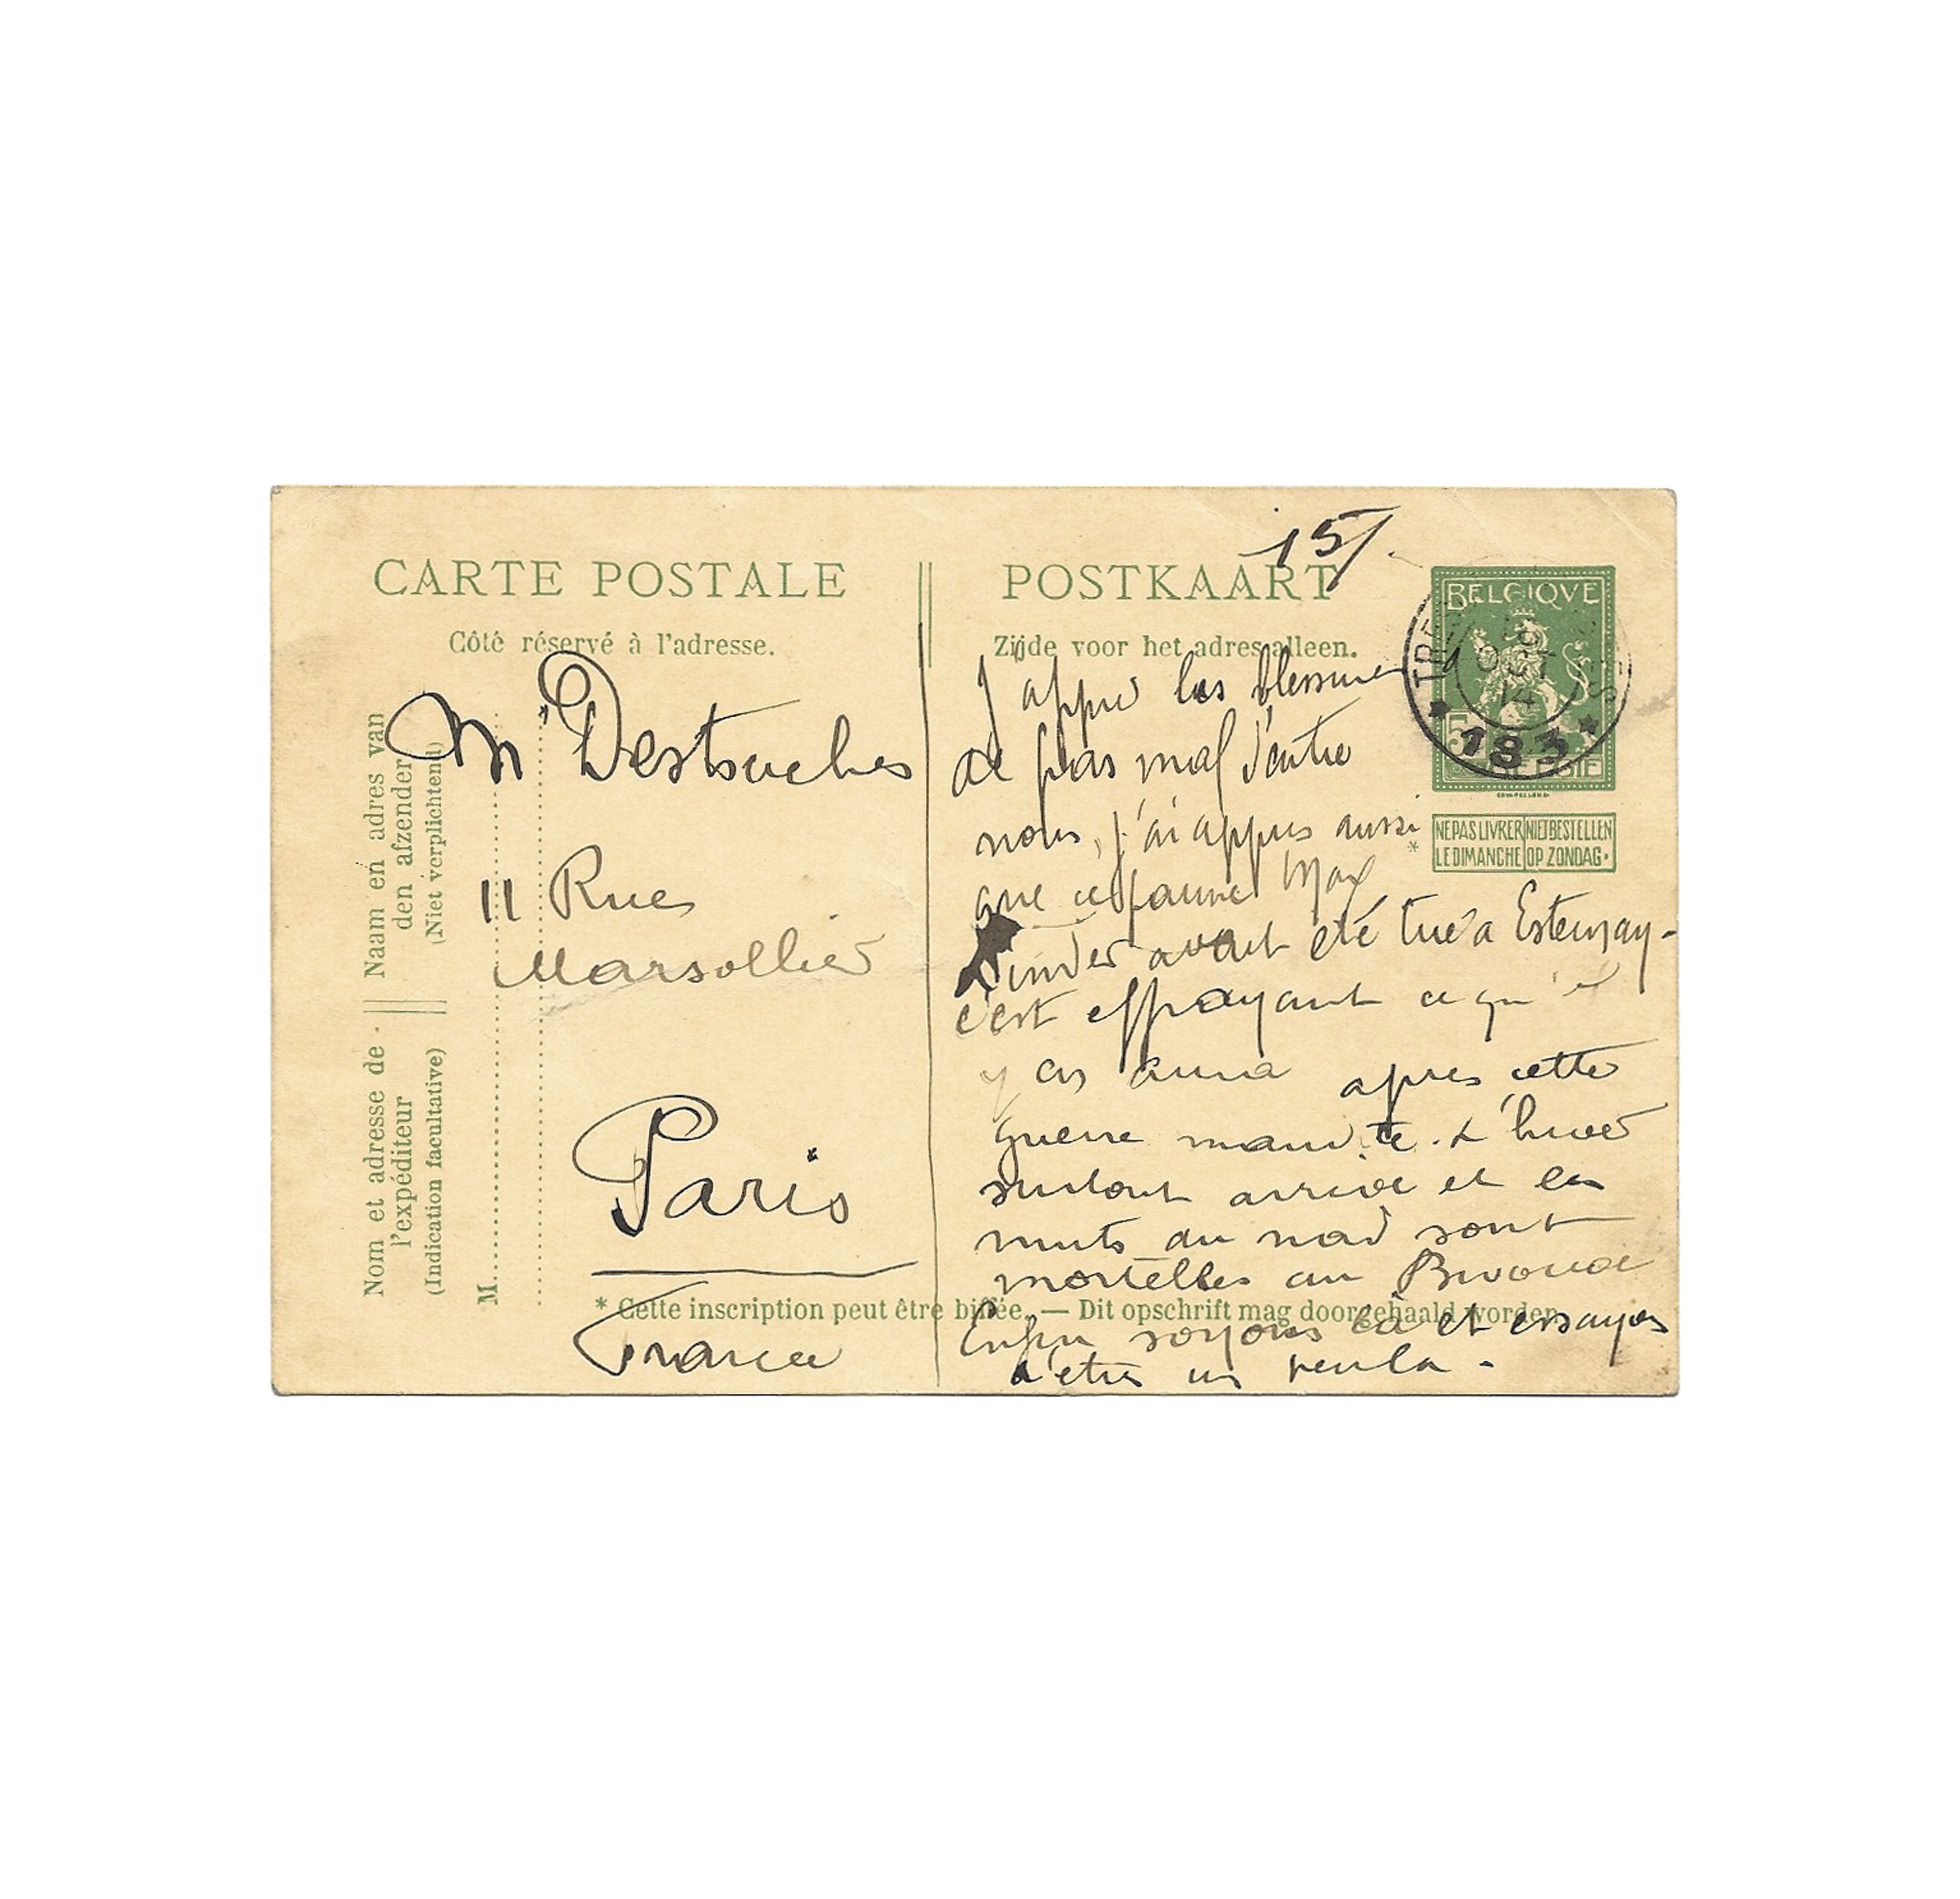 15/.
CARTE POSTALE
Côté réservé à l'adresse.
POSTKAART
Zijde voor het adres alleen.
BELGIQUE
5
BELGIE
TRE
OCT
14
183
NE PAS LIVRER LE DIMANCHE
NIET BESTELLEN OP ZONDAG.
Naam en adres van
den afzender
(Niet verplichtend)
Nom et adresse de
l'expéditeur
(Indication facultative)
M
Mr Destouches
11 Rue
Marsollier
Paris
France
J appre les blessures
de pas mal d'entre
nous, j'ai appris aussi *
que ce pauvre Max
Linder avait été tué a Esternay-
c'est effrayant ce qu'il
y en aura apres cette
guerre maudite. L'hiver
surtout arrive et les
nuits du nord sont
mortelles au Bivouac
Enfin soyons là et essayons
d'etre un peu là -
* Cette inscription peut être biffée. — Dit opschrift mag doorgehaald worden.